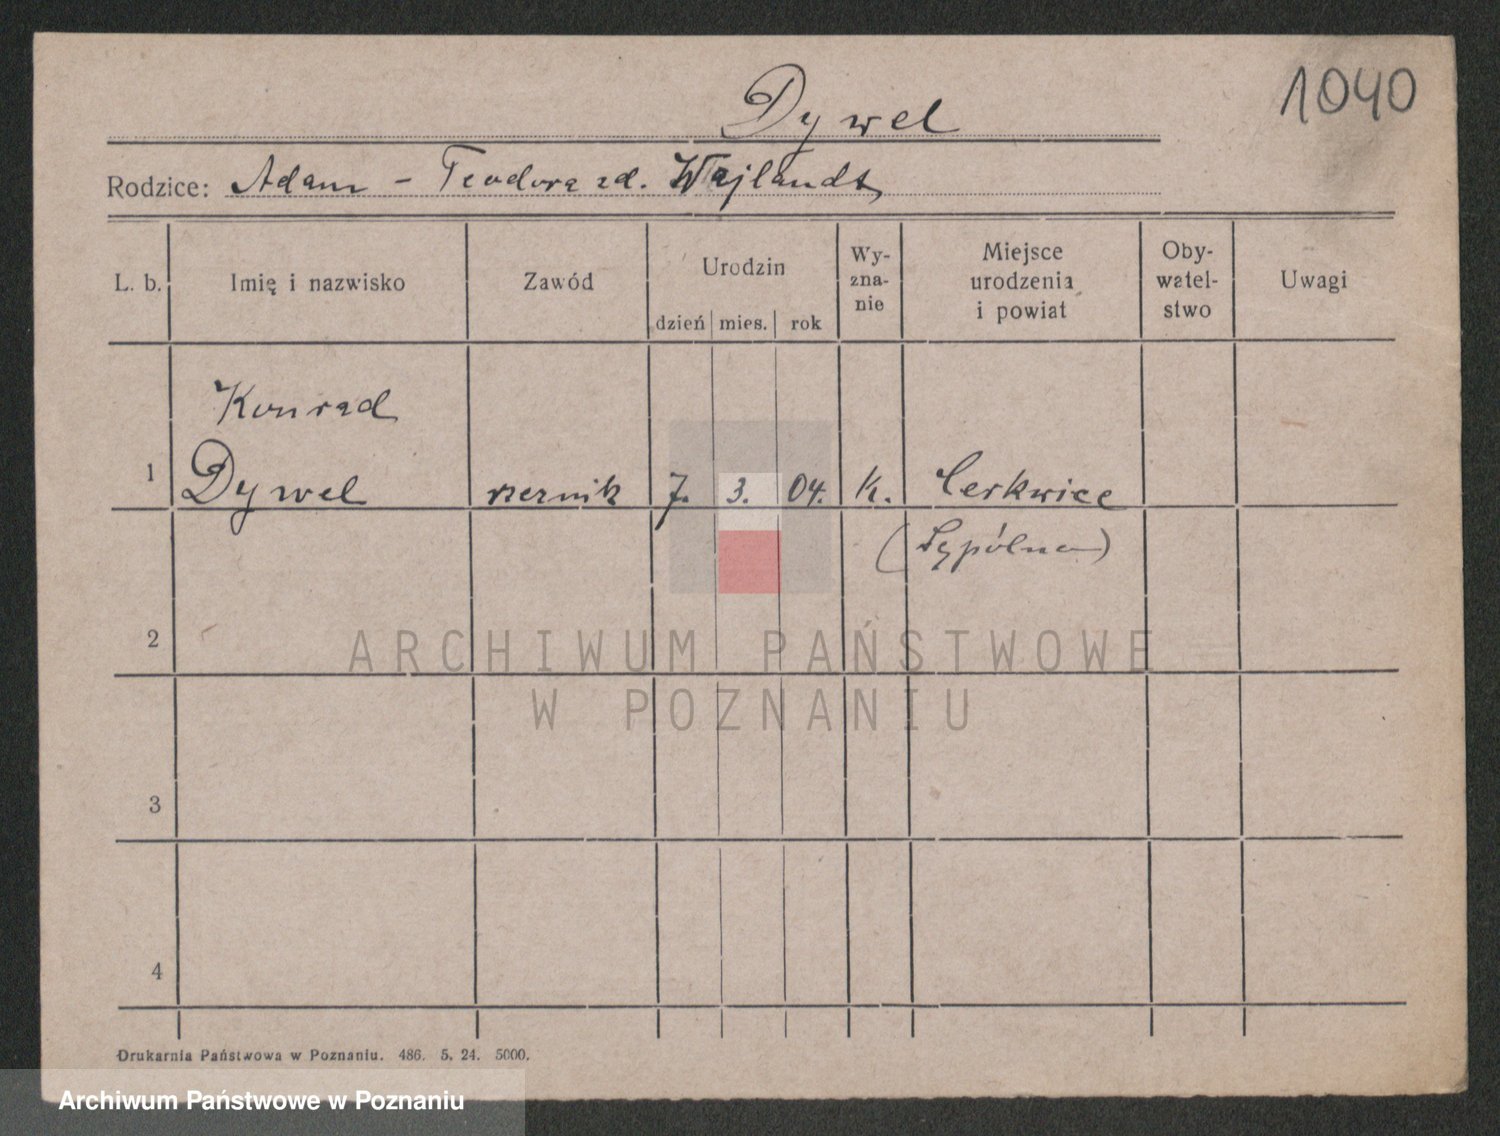 1040
Dywel
Rodzice: Adam – Teodora zd. Wajlandt
L. b.
Imię i nazwisko
Zawód
Urodzin
dzień mies. rok
Wy-
zna-
nie
Miejsce
urodzenia
i powiat
Oby-
watel-
stwo
Uwagi
Konrad
1 Dywel rzeźnik 7. 3. 04. k. Cerkwica
(Sępólno)
2
ARCHIWUM PAŃSTWOWE
W POZNANIU
3
4
Drukarnia Państwowa w Poznaniu. 486. 5. 24. 5000.
Archiwum Państwowe w Poznaniu